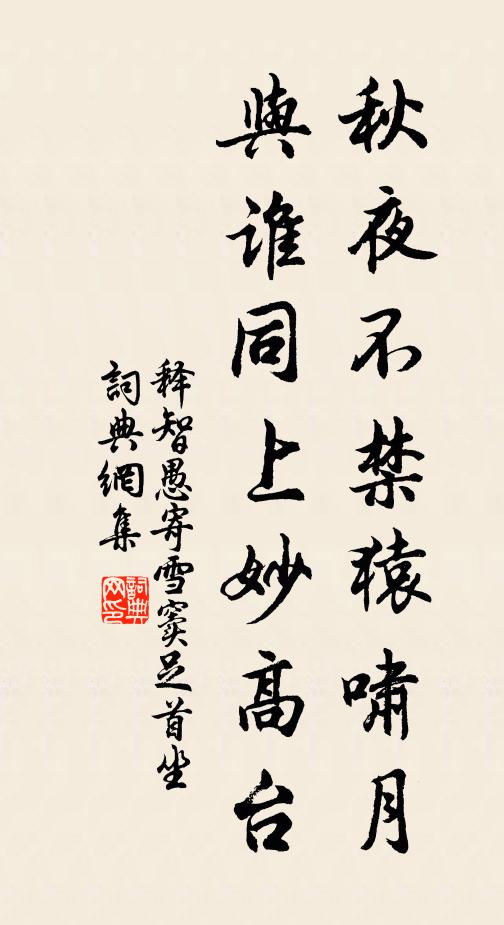 秋夜不禁猿啸月
與谁同上妙高台
释智愚寄雪窦足首坐
詞典網集
詞典網印